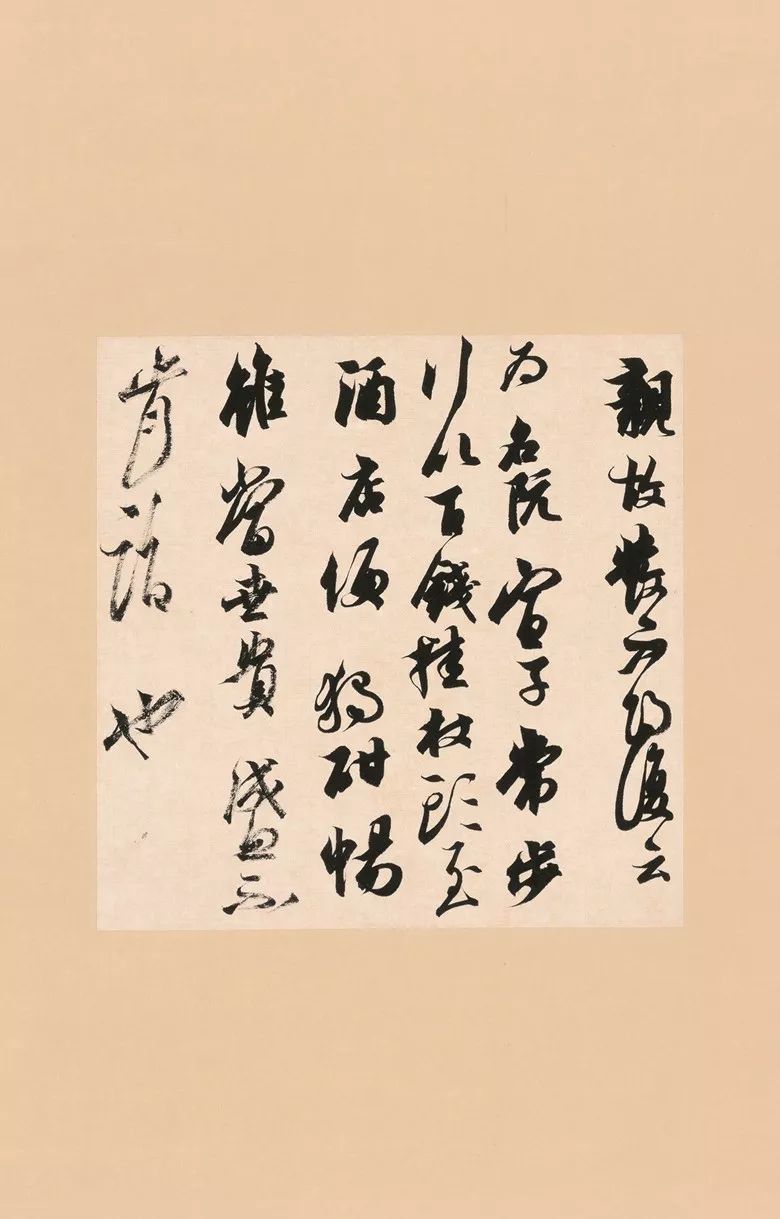 親故發不以復云
為名阮宣子常步
行以百錢挂杖頭至
酒店便獨酣暢
雖當世貴盛不
肯詣也